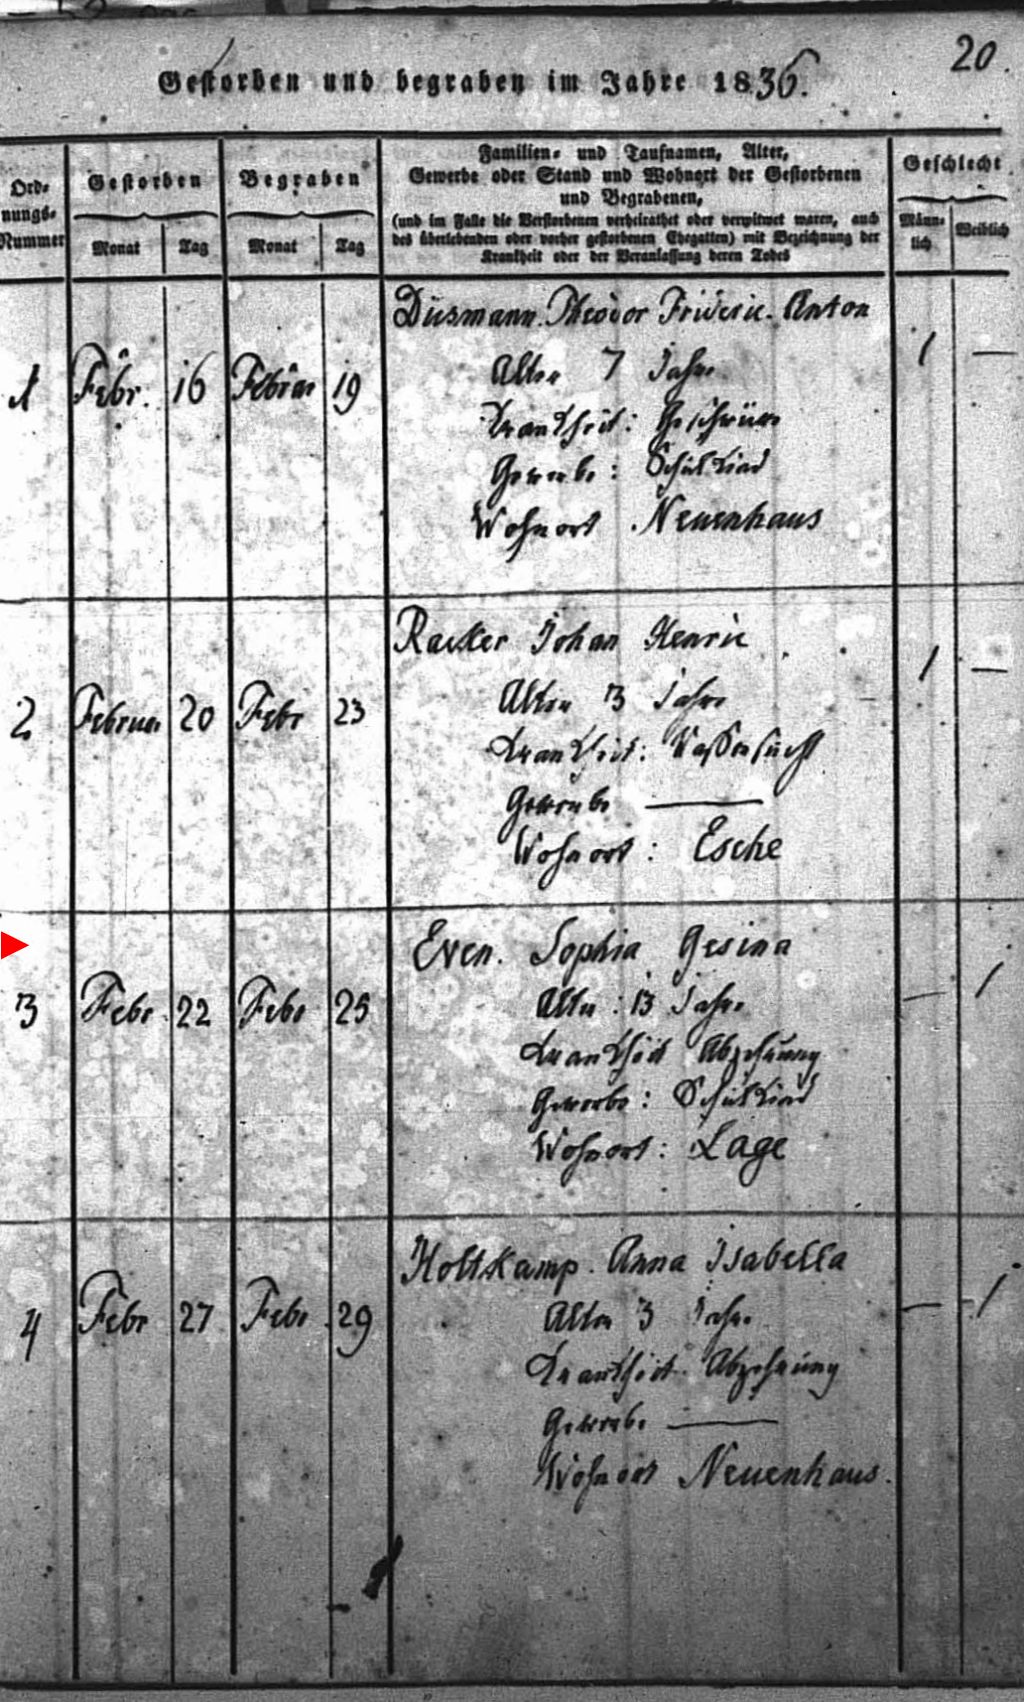 20.
Gestorben und begraben im Jahre 1836.
Ord-
nungs-
Nummer
Gestorben
Monat
Tag
Begraben
Monat
Tag
Familien- und Taufnamen, Alter,
Gewerbe oder Stand und Wohnort der Gestorbenen
und Begrabenen,
(und im Falle die Verstorbenen verheirathet oder verwitwet waren, auch
des überlebenden oder vorher gestorbenen Ehegatten) mit Bezeichnung der
Krankheit oder der Veranlassung deren Todes
Geschlecht
Männ-
lich
Weiblich
1 Febr. 16 Februar 19
Düsmann. Theodor Frideric. Anton
1 —
Alter 7 Jahre
Krankheit: Geschwüre
Gewerbe: Schulkind
Wohnort Neuenhaus
2 Februar 20 Febr 23
Racker Johan Henric
1 —
Alter 3 Jahre
Krankheit: Wassersucht
Gewerbe —
Wohnort: Esche
3 Febr 22 Febr 25
Even. Sophia Gesina
— 1
Alter: 13 Jahre
Krankheit Abzehrung
Gewerbe: Schulkind
Wohnort: Lage
4 Febr 27 Febr 29
Holtkamp. Anna Isabella
— 1
Alter 3 Jahre
Krankheit Abzehrung
Gewerbe —
Wohnort Neuenhaus.